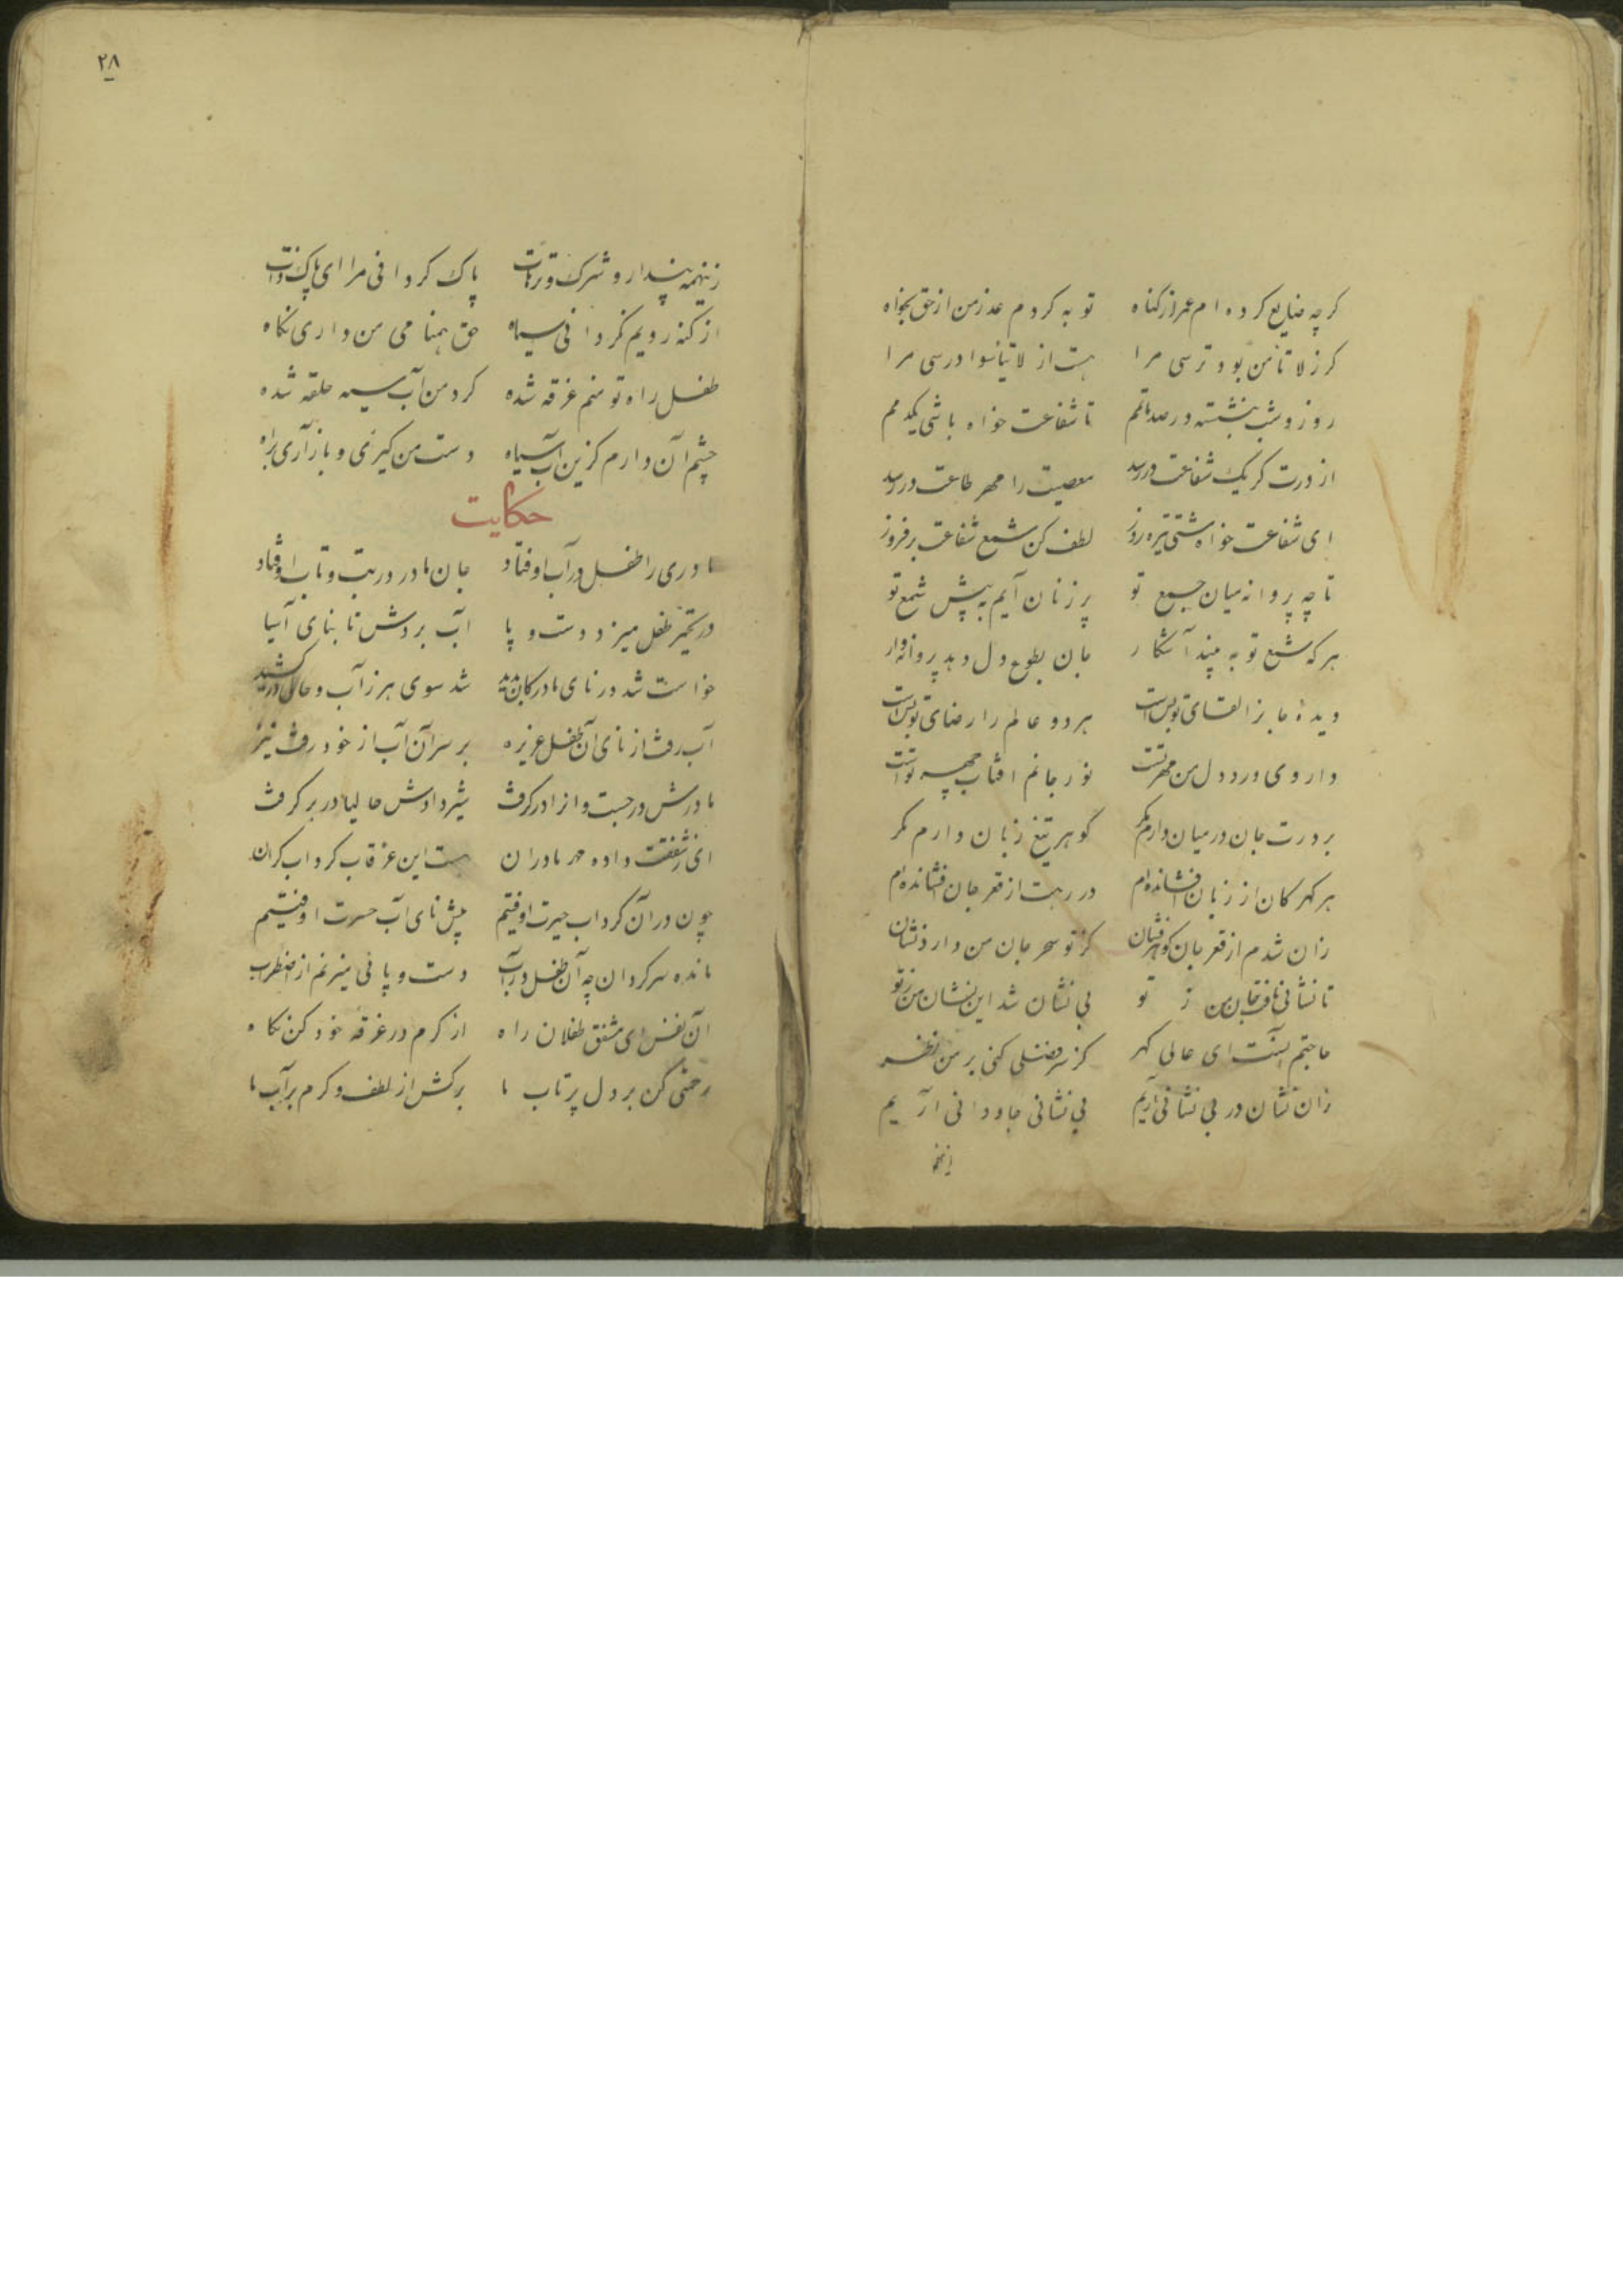 کرچه ضایع کرده ام عمر از کناه توبه کردم عذر من از حق بخواه
کر ز لا تأمن بود ترسی مرا هست از لا تیأسوا درسی مرا
روز و شب بنشسته در صد ماتمم تا شفاعت خواه باشی یکدمم
از درت کر یک شفاعت در رسد معصیت را مهر طاعت در رسد
ای شفاعت خواه مشتی تیره روز لطف کن شمع شفاعت برفروز
تا چه پروانه میان جمع تو پر زنان آیم به پیش شمع تو
هر که شمع تو به بیند آشکار جان بطوع دل دهد پروانه وار
دیدۀ جانرا لقای تو بس است هر دو عالم را رضای تو بس است
داروی درد دل من مهر تست نور جانم افتاب چهر تست
بر درت جان در میان دارم کمر کوهر تیغ زبان دارم مکر
هر کهر کان از زبان افشانده ام در رهت از قعر جان افشانده ام
زان شدم از قعر جان کوهرفشان کز تو بحر جان من دارد نشان
تا نشانی یافت جان من ز تو بی نشان شد این نشان من ز تو
حاجتم آنست ای عالی کهر کز سر فضلی کنی بر من نظر
زان نشان در بی نشانی آریم بی نشانی جاودانی آریم
زینهمه
۲۸
زینهمه پندار و شرک و ترهات پاک کردانی مرا ای پاک ذات
از کنه رویم نکردانی سیاه حق همنامی من داری نکاه
طفل راه تو منم غرقه شده کرد من آب سیه حلقه شده
چشم آن دارم کزین آب سیاه دست من کیری و باز آری براه
حکایت
مادری را طفل در آب اوفتاد جان مادر در تب و تاب اوفتاد
در تحیر طفل میزد دست و پا آب بردش تا بنای آسیا
خواست شد در نای مادر کان بدید شد سوی هرز آب و حالی درکشید
آب رفت از نای آن طفل عزیز بر سر آن آب از خود رفت نیز
مادرش درجست و انرا درکرفت شیر دادش حالیا در بر کرفت
ای ز شفقت داده مهر مادران هست این غرقاب کرداب کران
چون در آن کرداب حیرت اوفتیم پیش نای آب حسرت اوفتیم
مانده سرکردان چه آن طفل در آب دست و پائی میزنم از اضطراب
آن نفس ای مشفق طفلان راه از کرم در غرقه خود کن نکاه
رحمتی کن بر دل پرتاب ما برکش از لطف و کرم بر آب ما